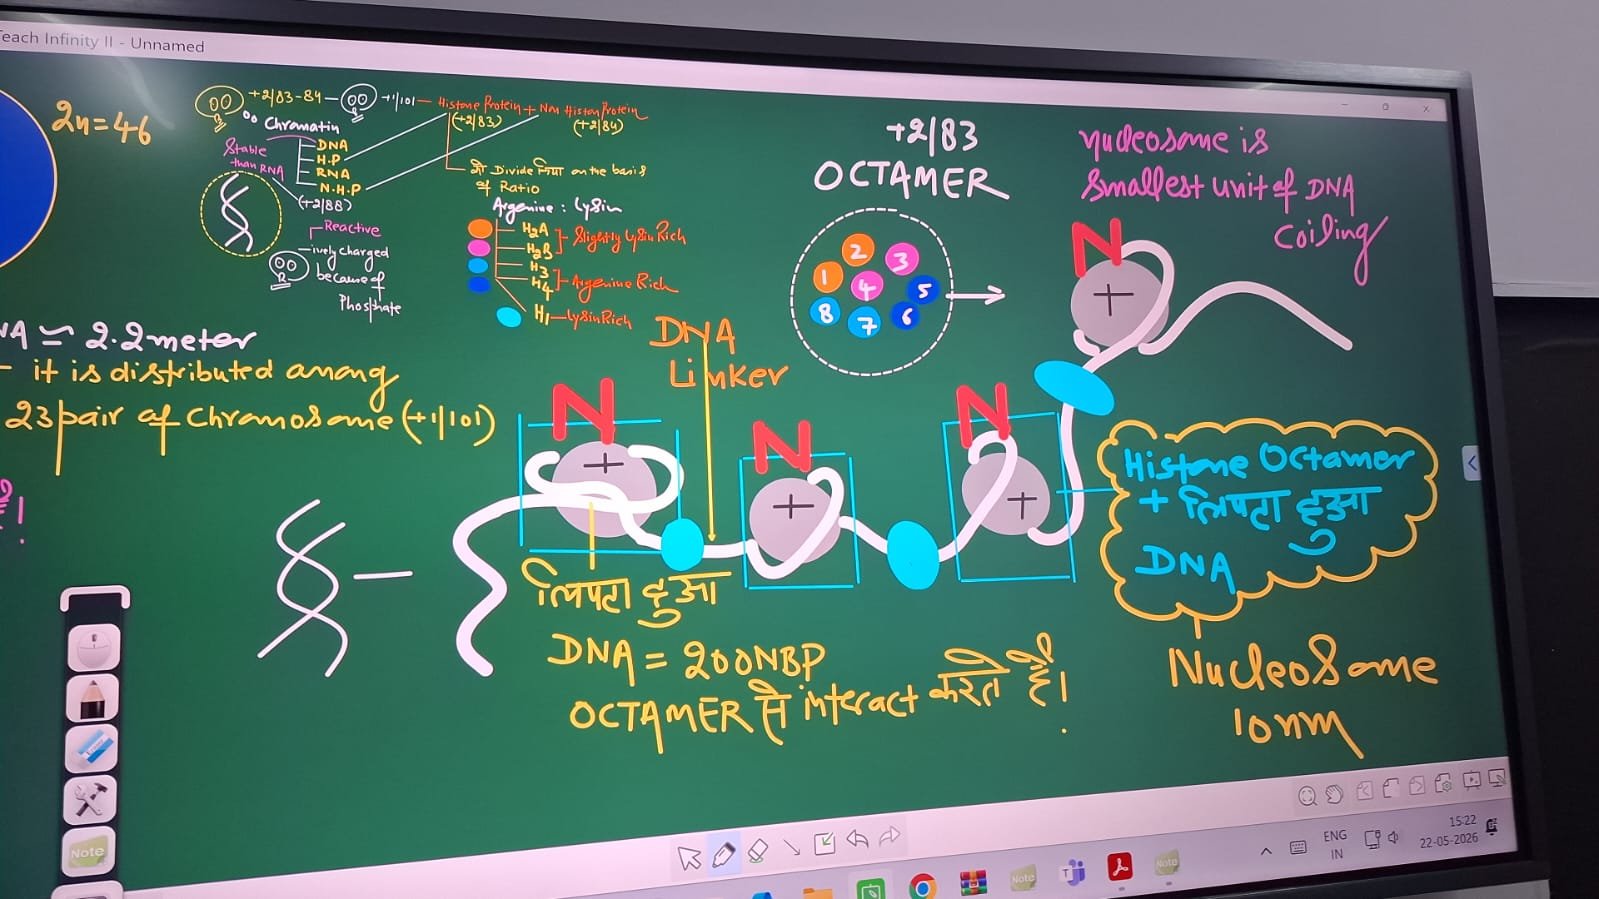 Teach Infinity II - Unnamed
2n=46
+2/83-84
+1/101
Histone Protein + Non Histon Protein
(+2/83)
(+2/84)
Chromatin
DNA
H.P
RNA
N.H.P
Stable
than RNA
(+2/88)
Reactive
-ively charged
because of
Phosphate
Divide किया on the basis
of Ratio
Argenine : Lysin
H2A
H2B
Slightly Lysin Rich
H3
H4
Argenine Rich
H1 - Lysin Rich
NA ≃ 2.2 meter
- it is distributed among
23 pair of Chromosome (+1/101)
!
+2/83
OCTAMER
1 2 3 4 5 6 7 8
nucleosome is
smallest unit of DNA
Coiling
DNA
Linker
N
+
N
+
N
+
N
+
लिपटा हुआ
DNA = 200NBP
OCTAMER से interact करते हैं।
Histone Octamer
+ लिपटा हुआ
DNA
Nucleosome
10nm
Note
Note
Note
ENG
IN
15:22
22-05-2026